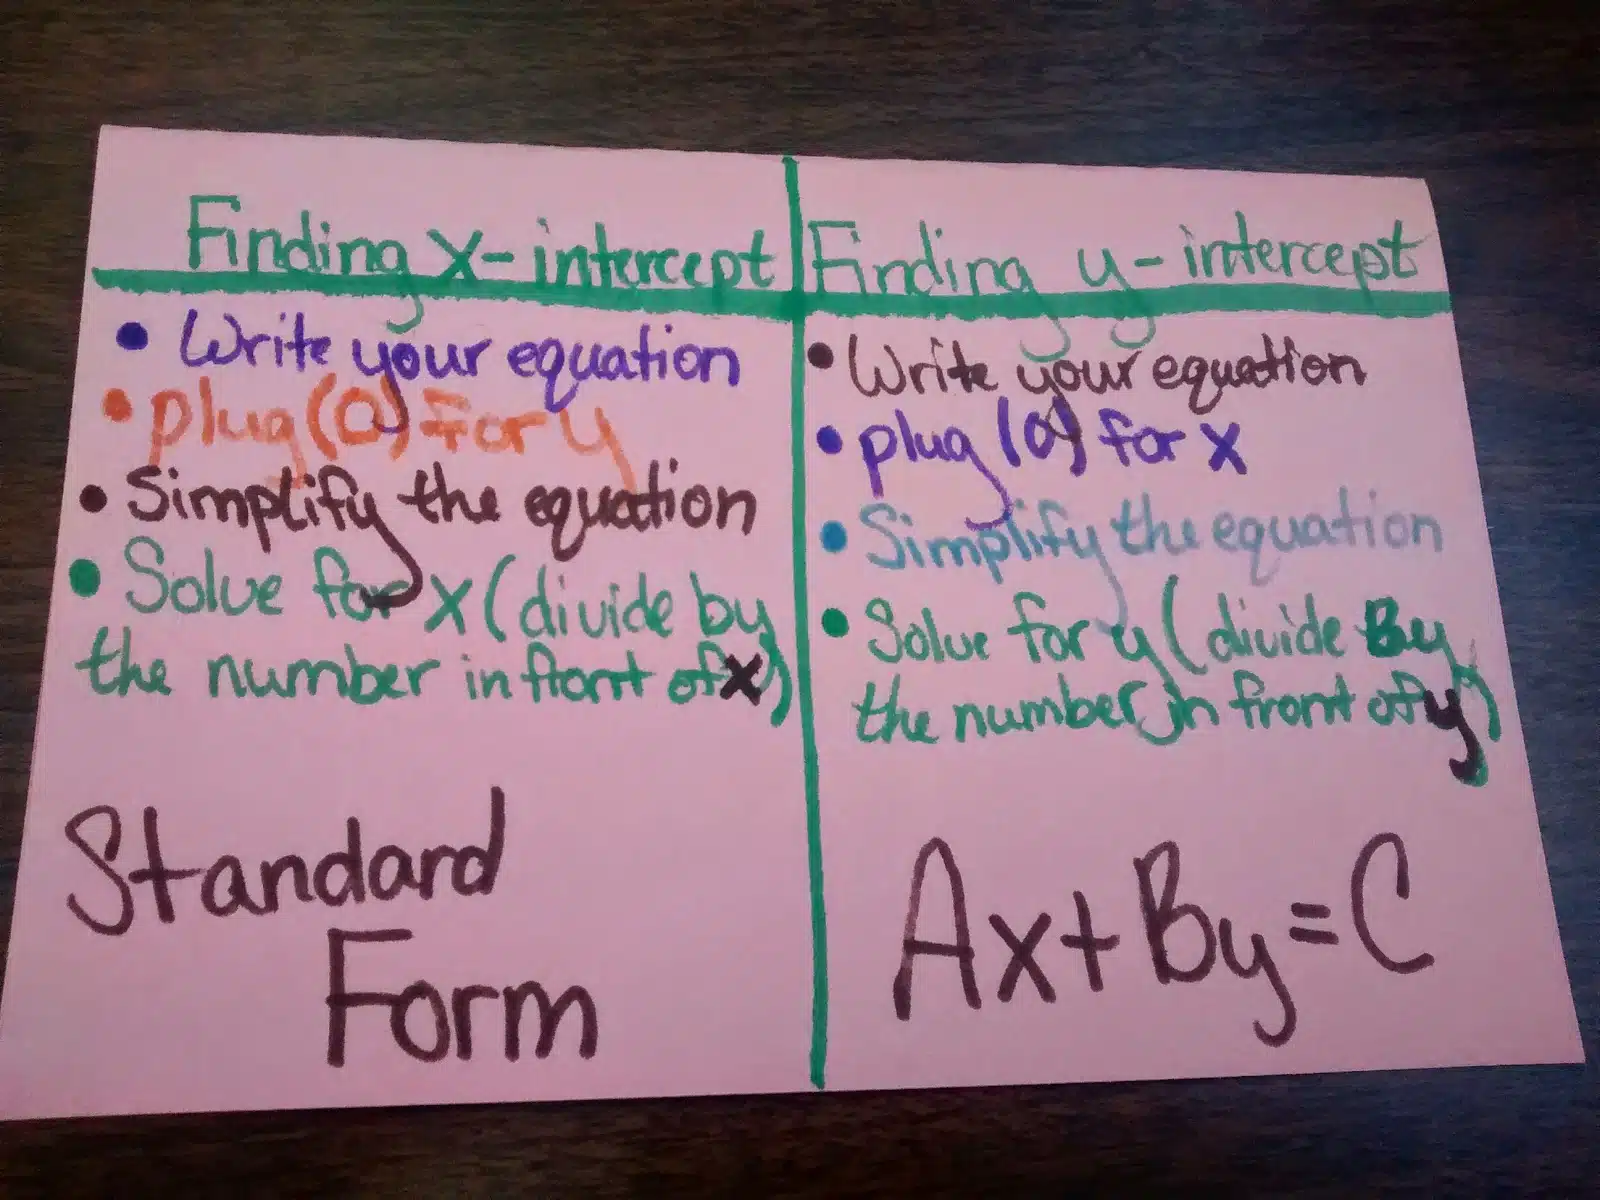 Finding x-intercept
• Write your equation
• plug (0) for y
• Simplify the equation
• Solve for x (divide by
the number in front of x)
Standard
Form
Finding y-intercept
• Write your equation
• plug (0) for x
• Simplify the equation
• Solve for y (divide By
the number in front of y)
Ax+By=C